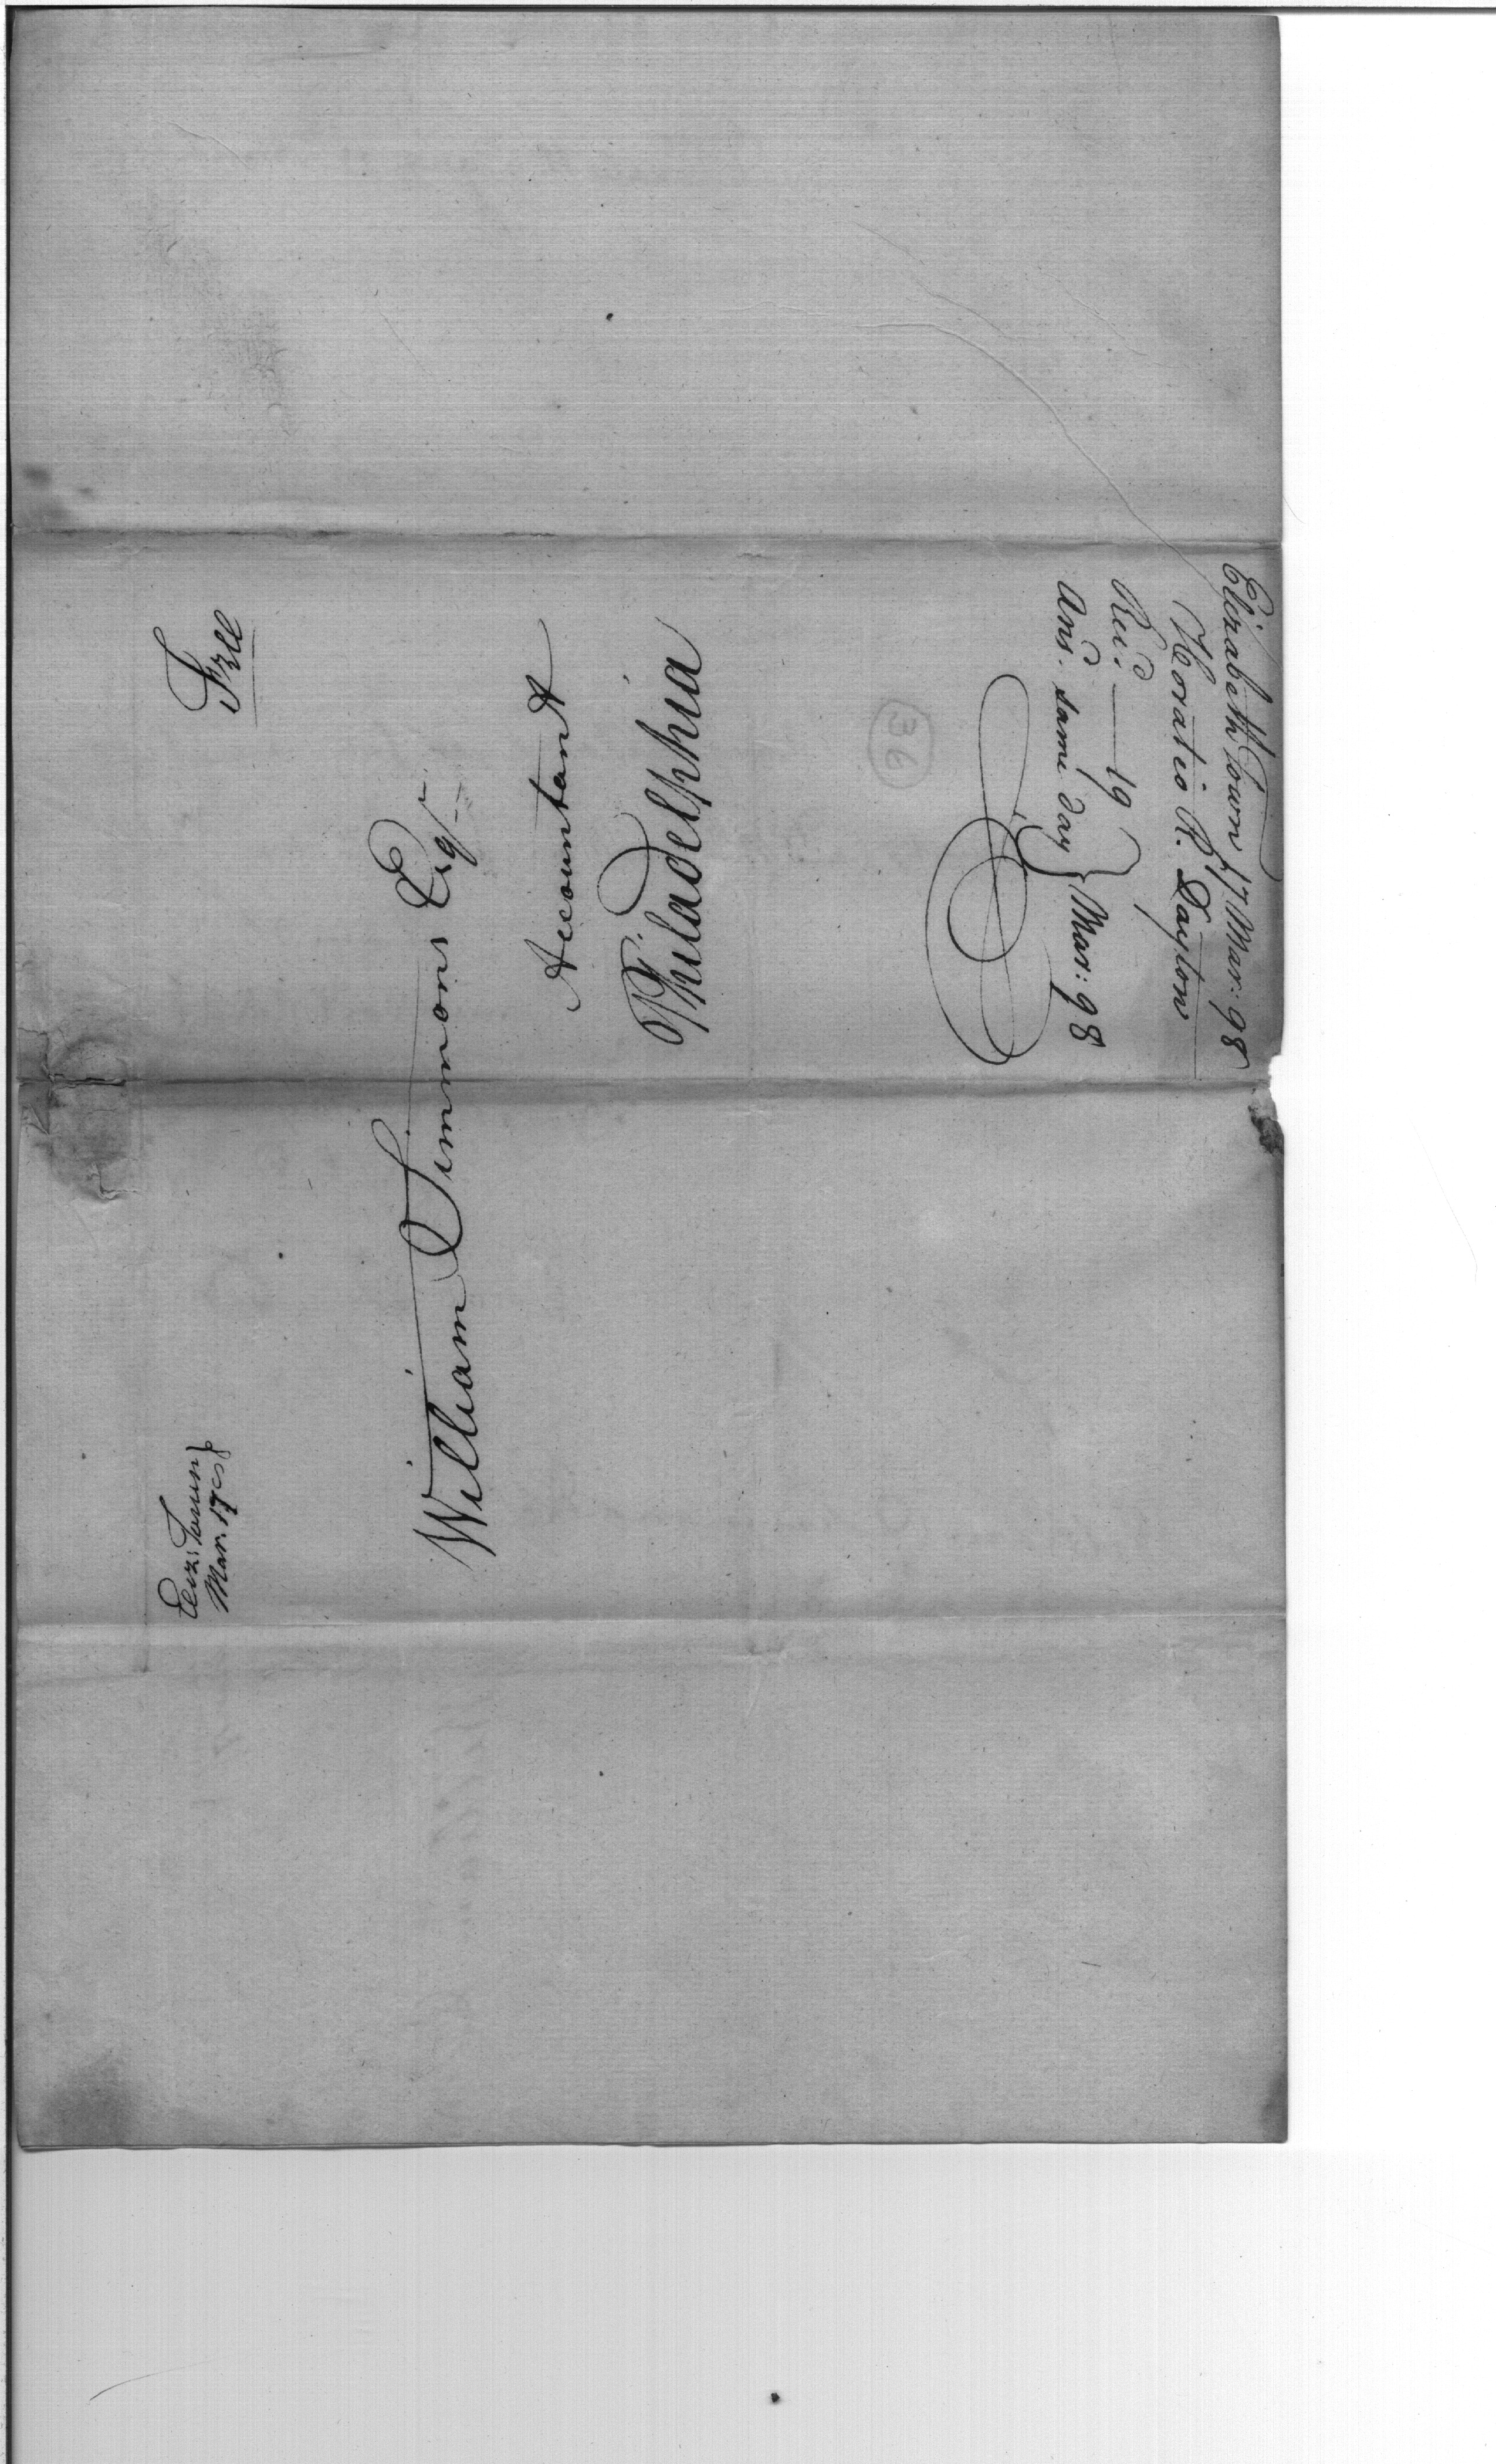 Eliz: Town }
Mar: 17 }
Free
William Simmons Esqr
Accountant
Philadelphia
36
Elizabeth Town 17 Mar: 98
Horatio R. Dayton
Recd. — 19 }
Ansd. same day } Mar: 98